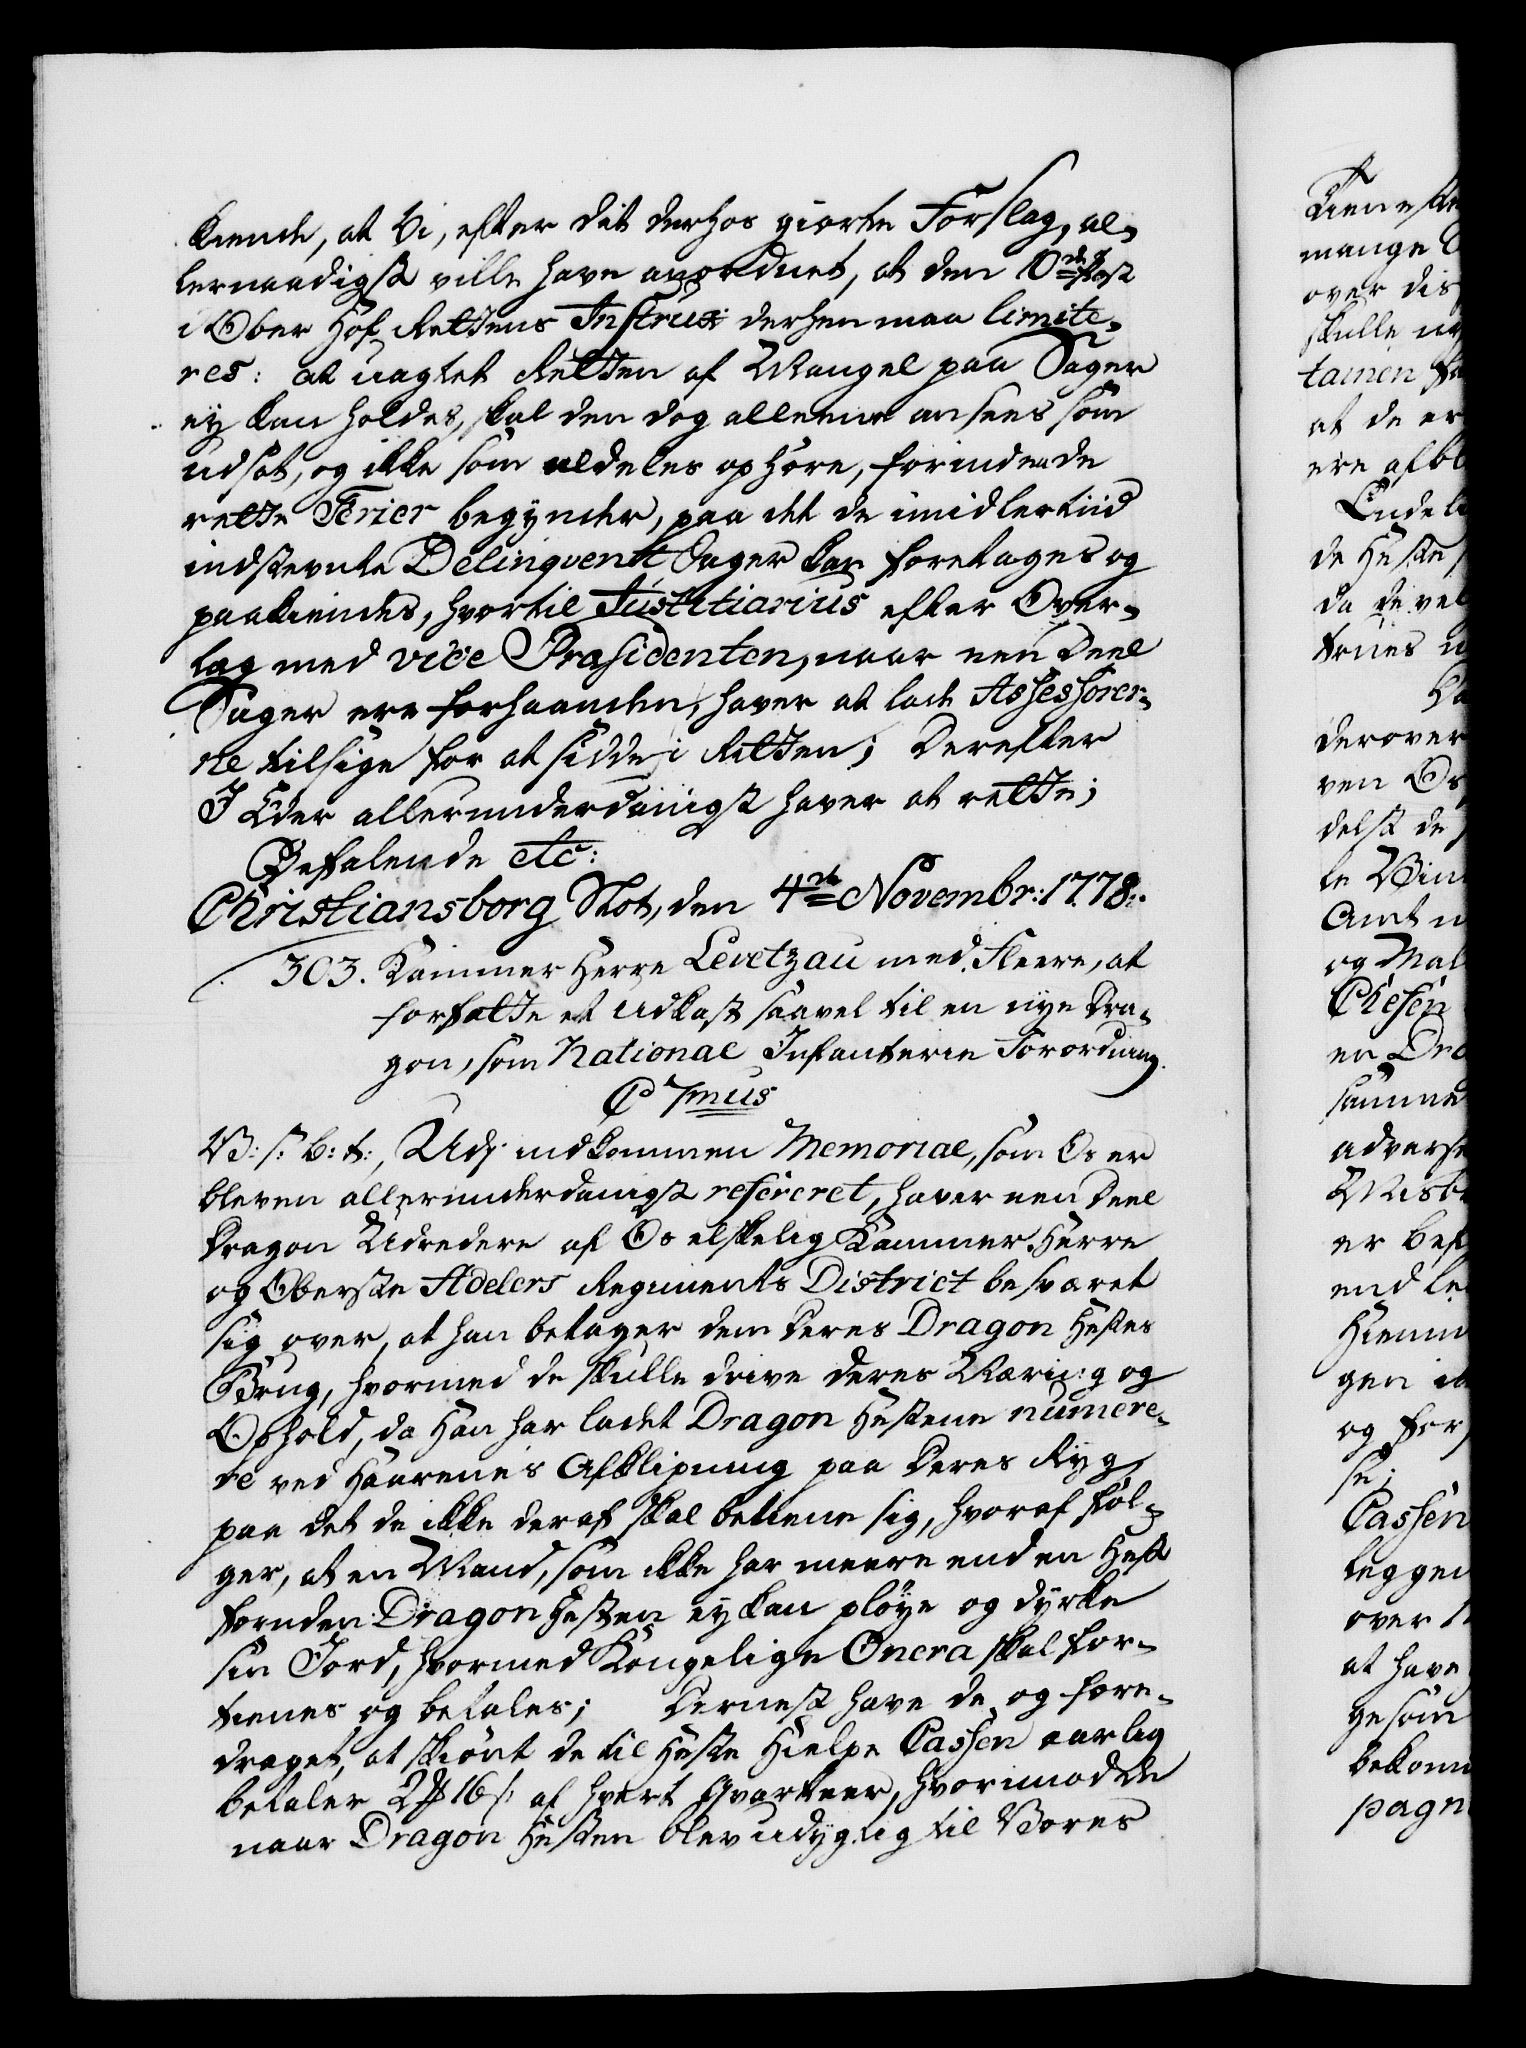 kiende, at Vi, efter dit derhos giorte Forslag, al-
lernaadigst ville have anordnet, at den 10de Post
i Ober Hof Rettens Instrux derhen maa limite-
res: at uagtet Retten af Mangel paa Sager
ey kan holdes, skal den dog alleene ansees som
udsat, og ikke som aldeles ophøre, forinden de
rette Ferier begynder, paa det de imidlertiid
indstevnte Delinqvent Sager kan foretages og
paakiendes, hvortil Justitiarius efter Over-
læg med vice Præsidenten, naar een Deel
Sager ere forhaanden, haver at lade Assessorer-
ne tilsige for at sidde i Retten; Derefter
I Eder allerunderdanigst haver at rette;
Befalende etc:
Christiansborg Slot, den 4de Novembr: 1778.
303. Kammer Herre Levetzau med Fleere, at
forfatte et Udkast saavel til en nye Dra-
gon, som National Infanterie Forordning.
C 7mus
V: s: b: t:, Udj indkommen Memorial, som Os er
bleven allerunderdanigst refereret, haver een Deel
Dragon Udredere af Os elskelig Kammer Herre
og Oberste Adelers Regiments District besværet
sig over, at han betager dem deres Dragon Hestes
Brug, hvormed de skulle drive deres Næring og
Ophold, da Han har ladet Dragon Hestene numere-
re ved Haarenes Afklipning paa deres Ryg,
paa det de ikke deraf skal betiene sig, hvoraf føl-
ger, at en Mand, som ikke har meere end en Hest
foruden Dragon Hesten ey kan pløye og dyrke
sin Jord, hvormed Kongelige Onera skal for-
tienes og betales; Dernest have de og fore-
draget, at skiønt de til Heste Hielpe Cassen aarlig
betaler 2 rd 16 s: af hvert Qvarteer, hvorimod de
naar Dragon Hesten blev udygtig til Vores